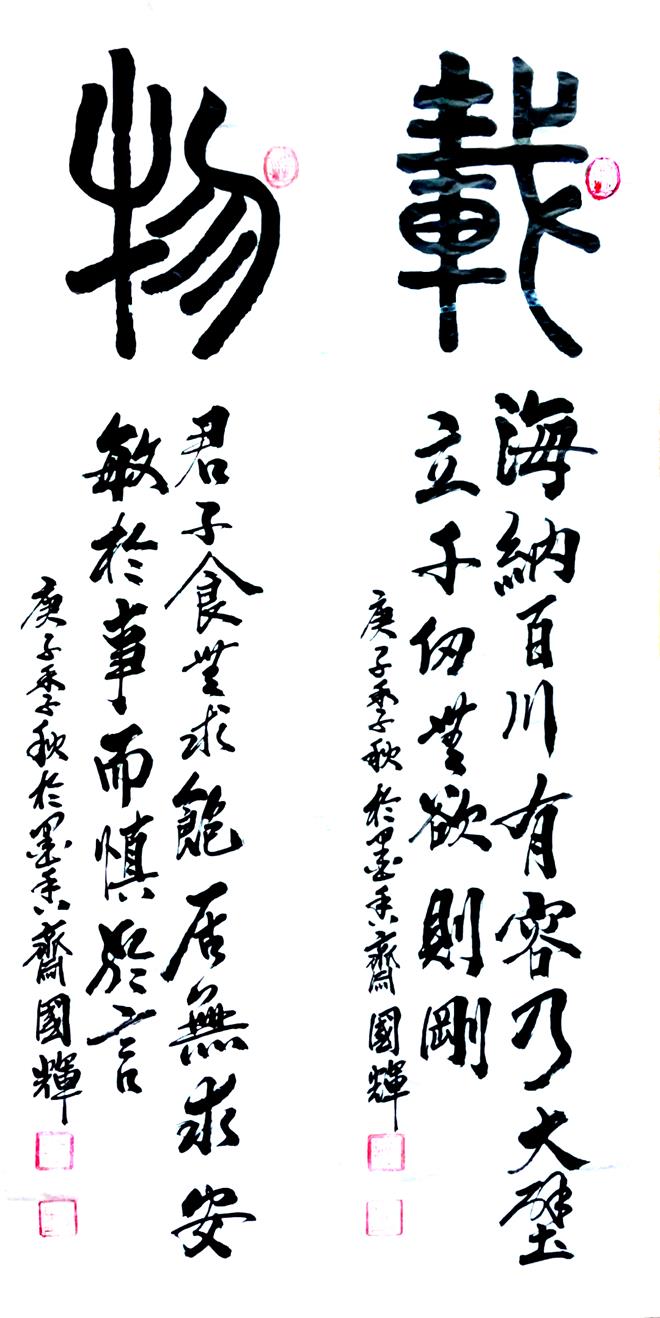 載
海納百川有容乃大壁
立千仞無欲則剛
庚子季秋於墨香齋國輝
物
君子食無求飽居無求安
敏於事而慎於言
庚子季秋於墨香齋國輝